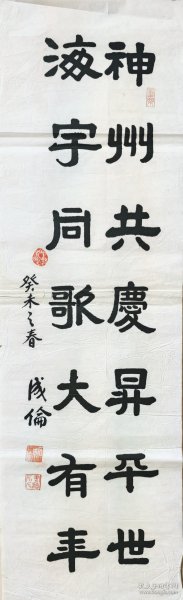 神州共慶昇平世
海宇同歌大有年
癸未之春
成倫